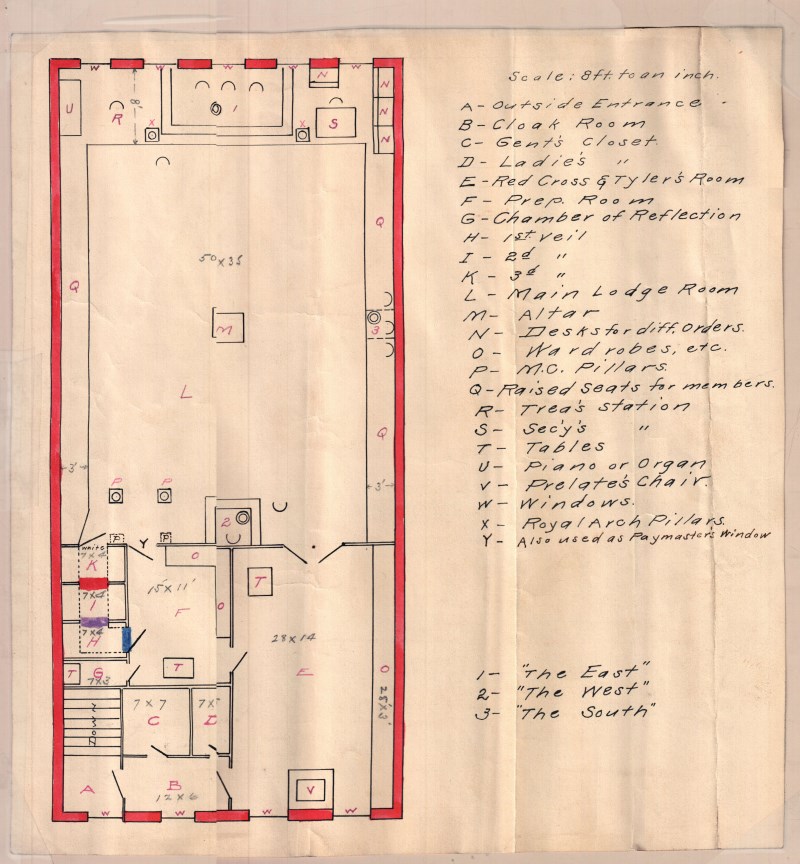 W W W W
N
U
R
8'
X
1
X
S
N
N
N
Q
50 x 35
Q
M
3
L
Q
3'
P P
3'
2
P Y P
white
7x4
K
O
7x4
I
7x4
H
15 x 11'
F
O
T
28 x 14
E
O
25'x3'
T G
7x3
T
Down
7 x 7
C
7x5'
D
A
B
12 x 6
V
W W W W
Scale: 8ft. to an inch.
A - Outside Entrance
B - Cloak Room
C - Gent's Closet
D - Ladie's "
E - Red Cross & Tyler's Room
F - Prep. Room
G - Chamber of Reflection
H - 1st Veil
I - 2d "
K - 3d "
L - Main Lodge Room
M - Altar
N - Desks for diff. Orders.
O - Wardrobes, etc.
P - M.C. Pillars.
Q - Raised Seats for members.
R - Trea's station
S - Sec'y's "
T - Tables
U - Piano or Organ
V - Prelate's Chair.
W - Windows.
X - Royal Arch Pillars.
Y - Also used as Paymaster's Window
1 - "The East"
2 - "The West"
3 - "The South"